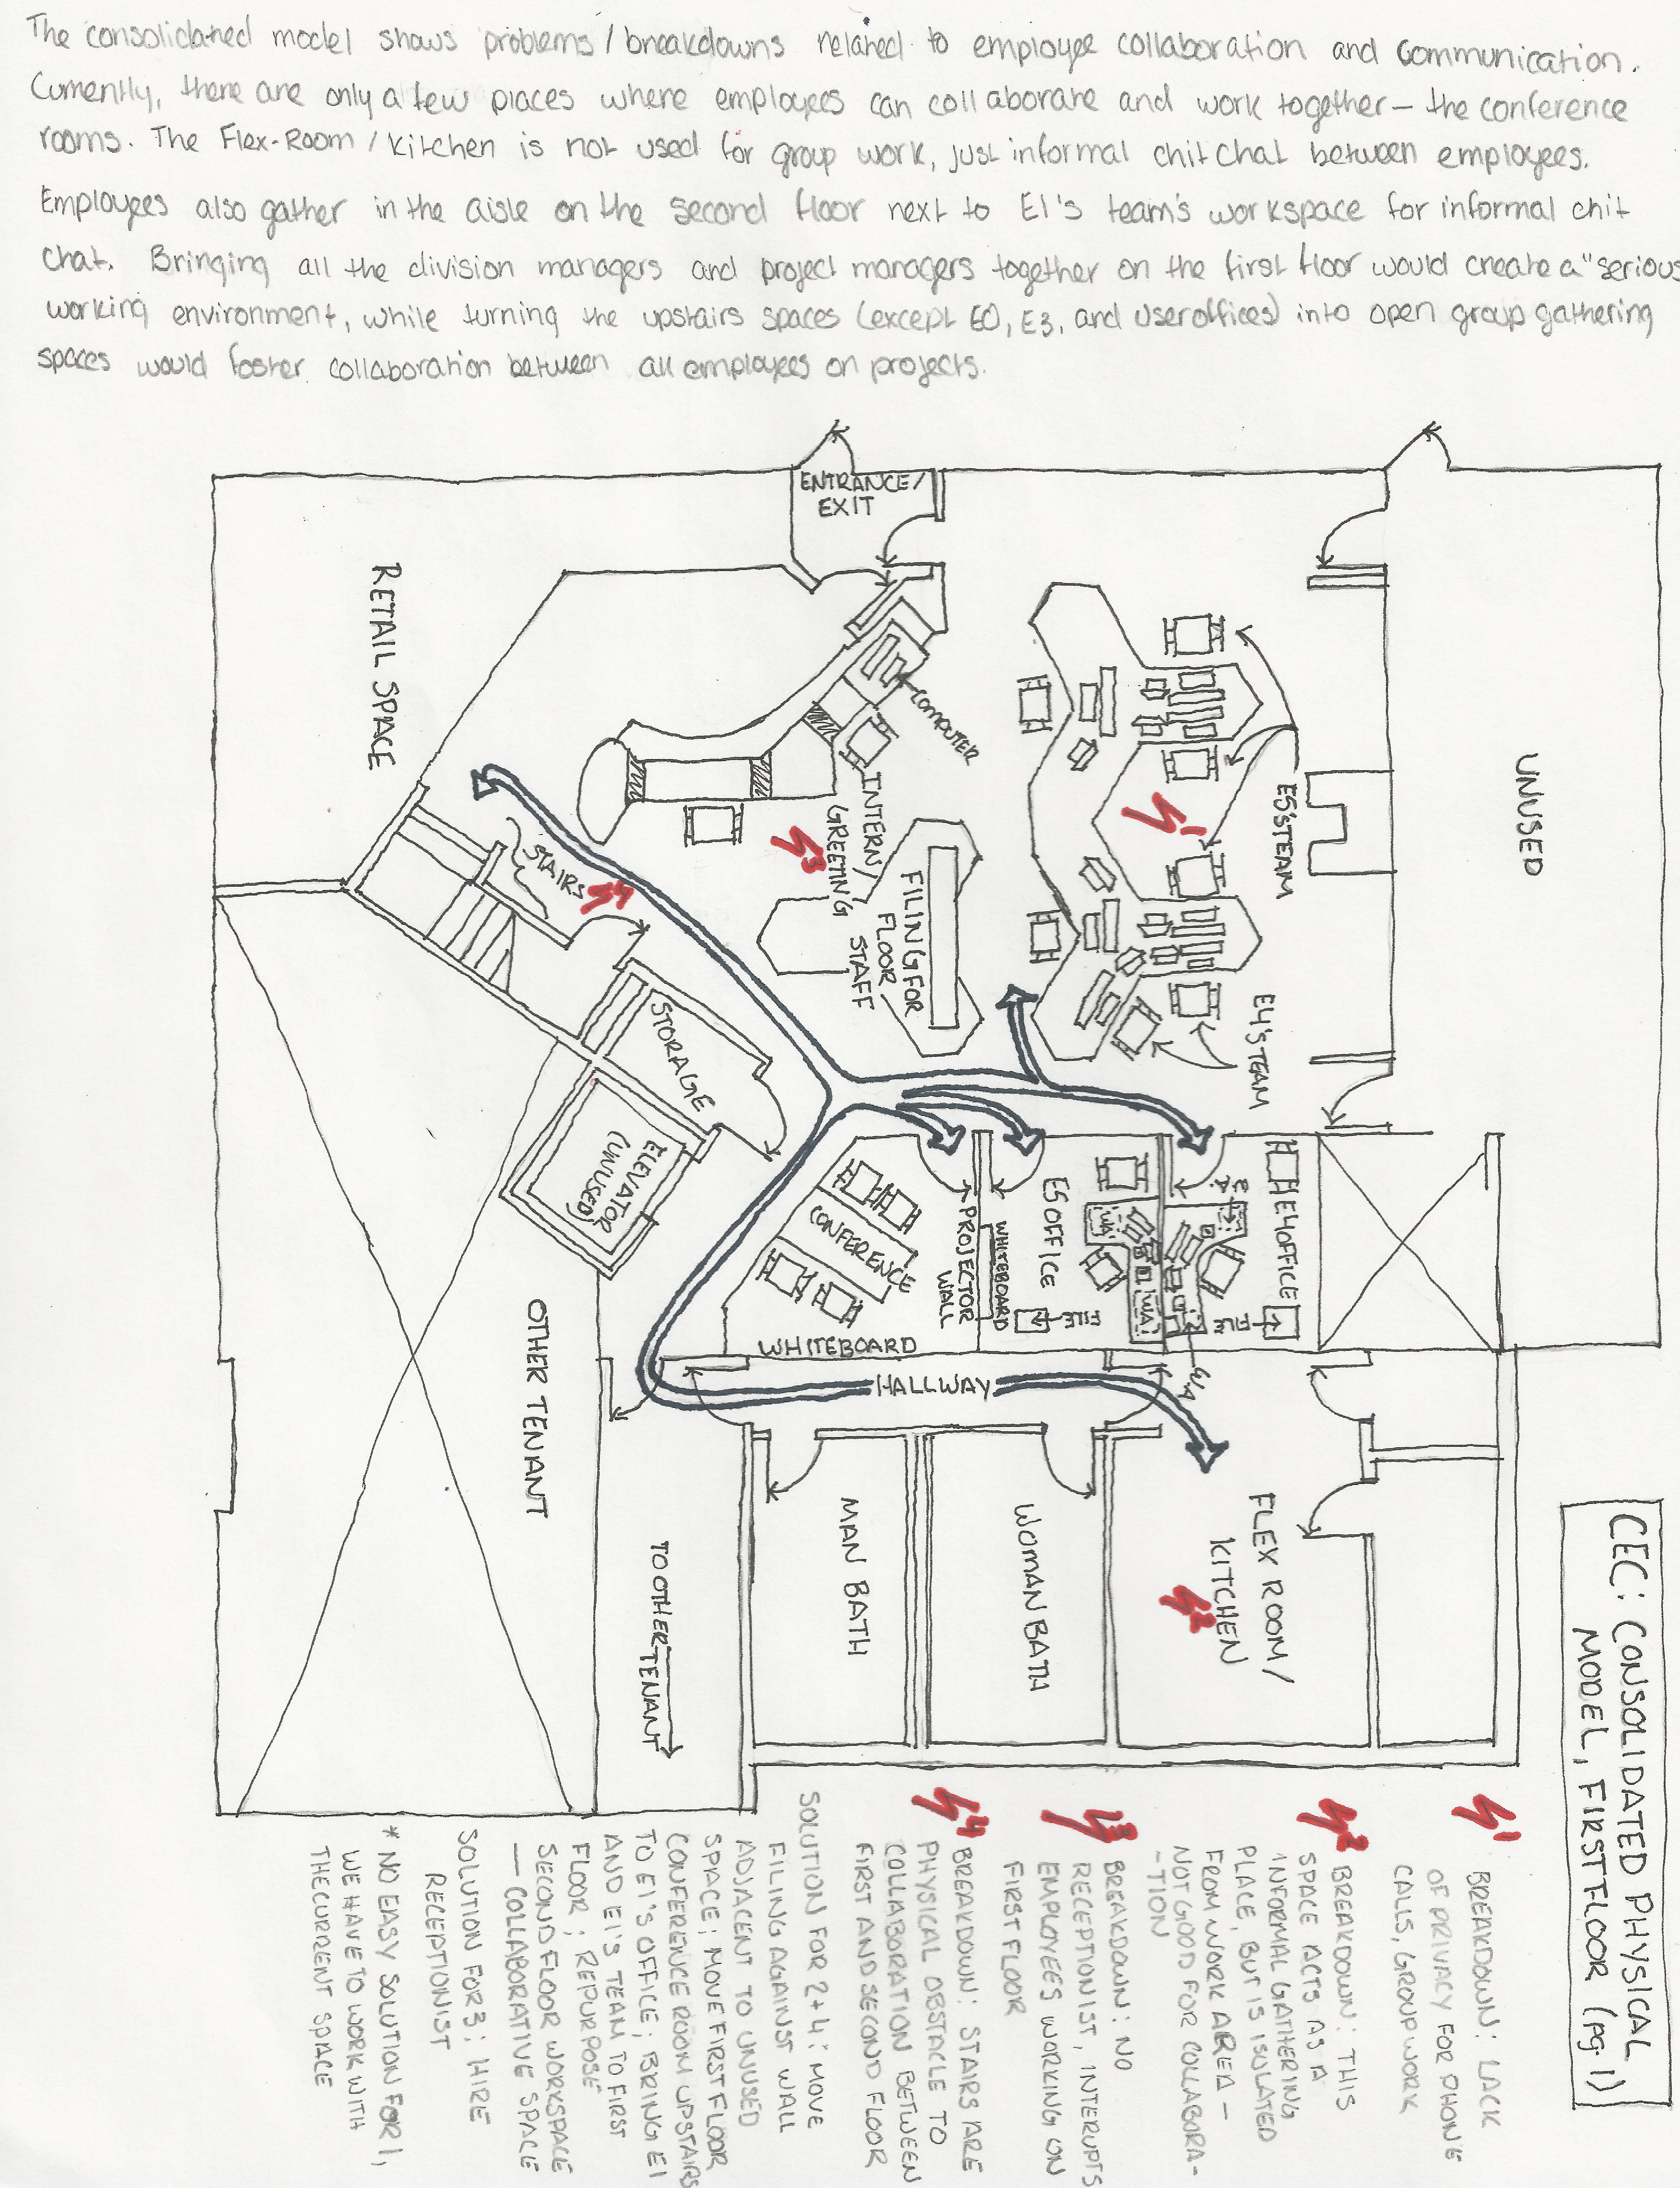 CEC: CONSOLIDATED PHYSICAL
MODEL, FIRST FLOOR (pg. 1)
The consolidated model shows problems/breakdowns related to employee collaboration and communication.
Currently, there are only a few places where employees can collaborate and work together – the conference
rooms. The Flex-Room/Kitchen is not used for group work, just informal chit chat between employees.
Employees also gather in the aisle on the second floor next to E1's team's workspace for informal chit
chat. Bringing all the division managers and project managers together on the first floor would create a "serious
working environment, while turning the upstairs spaces (except E0, E3, and user offices) into open group gathering
spaces would foster collaboration between all employees on projects.
UNUSED
E5'S TEAM
E4'S TEAM
E4 OFFICE
FILE
W.A.
W.A.
FLEX ROOM/
KITCHEN
2
1
WA
WA
E5 OFFICE
FILE
WHITEBOARD
PROJECTOR
WALL
WHITEBOARD
CONFERENCE
HALLWAY
WOMAN BATH
MAN BATH
COMPUTER
FILING FOR
FLOOR
STAFF
INTERN/
GREETING
3
ENTRANCE/
EXIT
STORAGE
ELEVATOR
(UNUSED)
4
STAIRS
TO OTHER TENANT
OTHER TENANT
RETAIL SPACE
1 BREAKDOWN: LACK
OF PRIVACY FOR PHONE
CALLS, GROUP WORK
2 BREAKDOWN: THIS
SPACE ACTS AS A
INFORMAL GATHERING
PLACE, BUT IS ISOLATED
FROM WORK AREA –
NOT GOOD FOR COLLABORA-
-TION
3 BREAKDOWN: NO
RECEPTIONIST, INTERUPTS
EMPLOYEES WORKING ON
FIRST FLOOR
4 BREAKDOWN: STAIRS ARE
PHYSICAL OBSTACLE TO
COLLABORATION BETWEEN
FIRST AND SECOND FLOOR
SOLUTION FOR 2+4: MOVE
FILING AGAINST WALL
ADJACENT TO UNUSED
SPACE; MOVE FIRST FLOOR
CONFERENCE ROOM UPSTAIRS
TO E1'S OFFICE; BRING E1
AND E1'S TEAM TO FIRST
FLOOR; REPURPOSE
SECOND FLOOR WORKSPACE
— COLLABORATIVE SPACE
SOLUTION FOR 3: HIRE
RECEPTIONIST
* NO EASY SOLUTION FOR 1,
WE HAVE TO WORK WITH
THE CURRENT SPACE